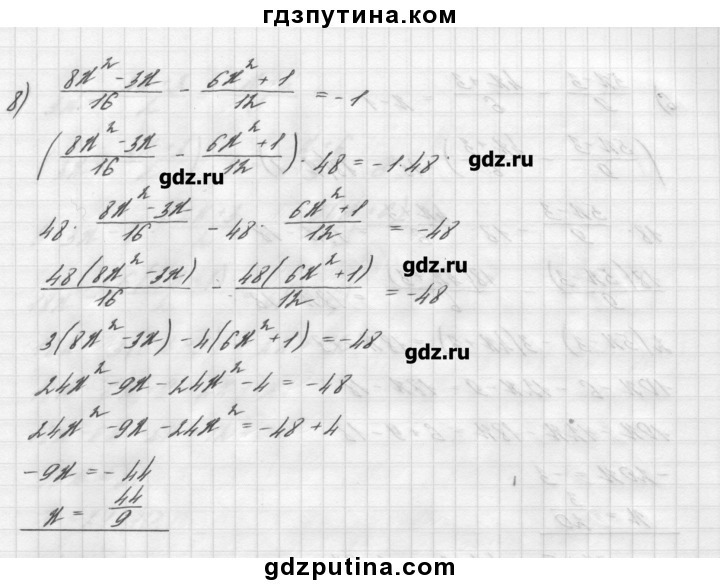 гдзпутина.com
8) (8x² - 3x)/16 - (6x² + 1)/12 = -1
((8x² - 3x)/16 - (6x² + 1)/12) · 48 = -1 · 48
gdz.ru
gdz.ru
48 · (8x² - 3x)/16 - 48 · (6x² + 1)/12 = -48
gdz.ru
48(8x² - 3x)/16 - 48(6x² + 1)/12 = -48
3(8x² - 3x) - 4(6x² + 1) = -48
gdz.ru
24x² - 9x - 24x² - 4 = -48
24x² - 9x - 24x² = -48 + 4
-9x = -44
x = 44/9
gdzputina.com